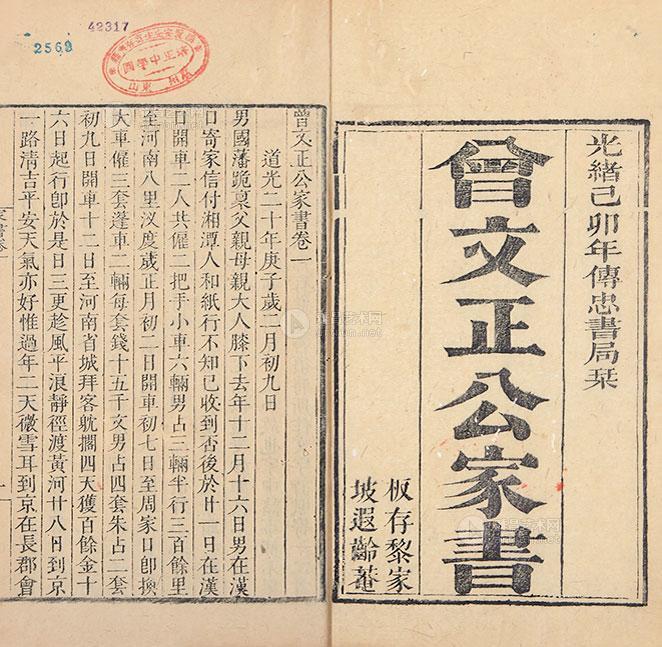 光緒己卯年傳忠書局栞
曾文正公家書
板存黎家
坡遐齡菴
42317
2569
曾文正公家書卷一
道光二十年庚子歲二月初九日
男國藩跪稟父親母親大人膝下去年十二月十六日男在漢
口寄家信付湘潭人和紙行不知已收到否後於廿一日在漢
口開車二人共僱二把手小車六輛男占三輛半行三百餘里
至河南八里汊度歲正月初二日開車初七日至周家口即換
大車僱三套篷車二輛每套錢十五千文男占四套朱占二套
初九日開車十二日至河南省城拜客躭擱四天獲百餘金十
六日起行即於是日三更趁風平浪靜徑渡黃河廿八日到京
一路清吉平安天氣亦好惟過年二天微雪耳到京在長郡會